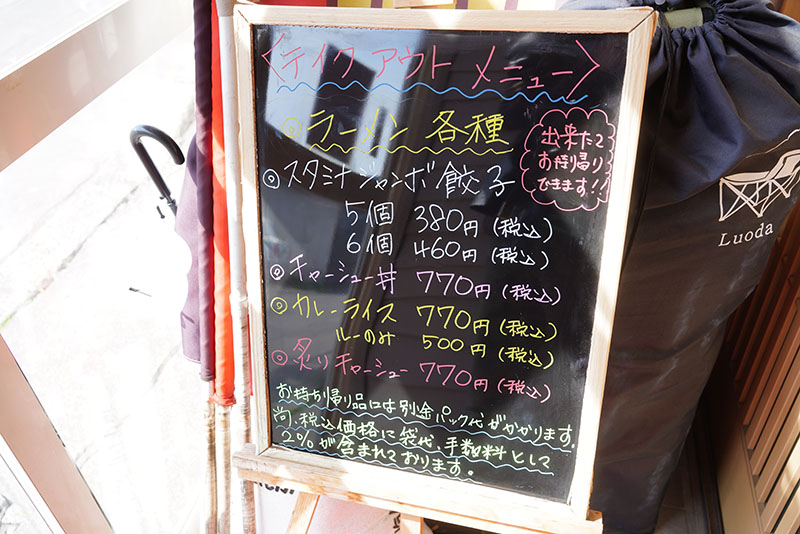 〈テイクアウト メニュー〉
◎ラーメン 各種
出来たて
お持帰り
できます!!
◎スタミナジャンボ餃子
5個 380円(税込)
6個 460円(税込)
◎チャーシュー丼 770円(税込)
◎カレーライス 770円(税込)
ルーのみ 500円(税込)
◎炙りチャーシュー 770円(税込)
お持ち帰り品には別途パック代がかかります。
尚、税込価格に袋代、手数料として
2%が含まれております。
Luoda